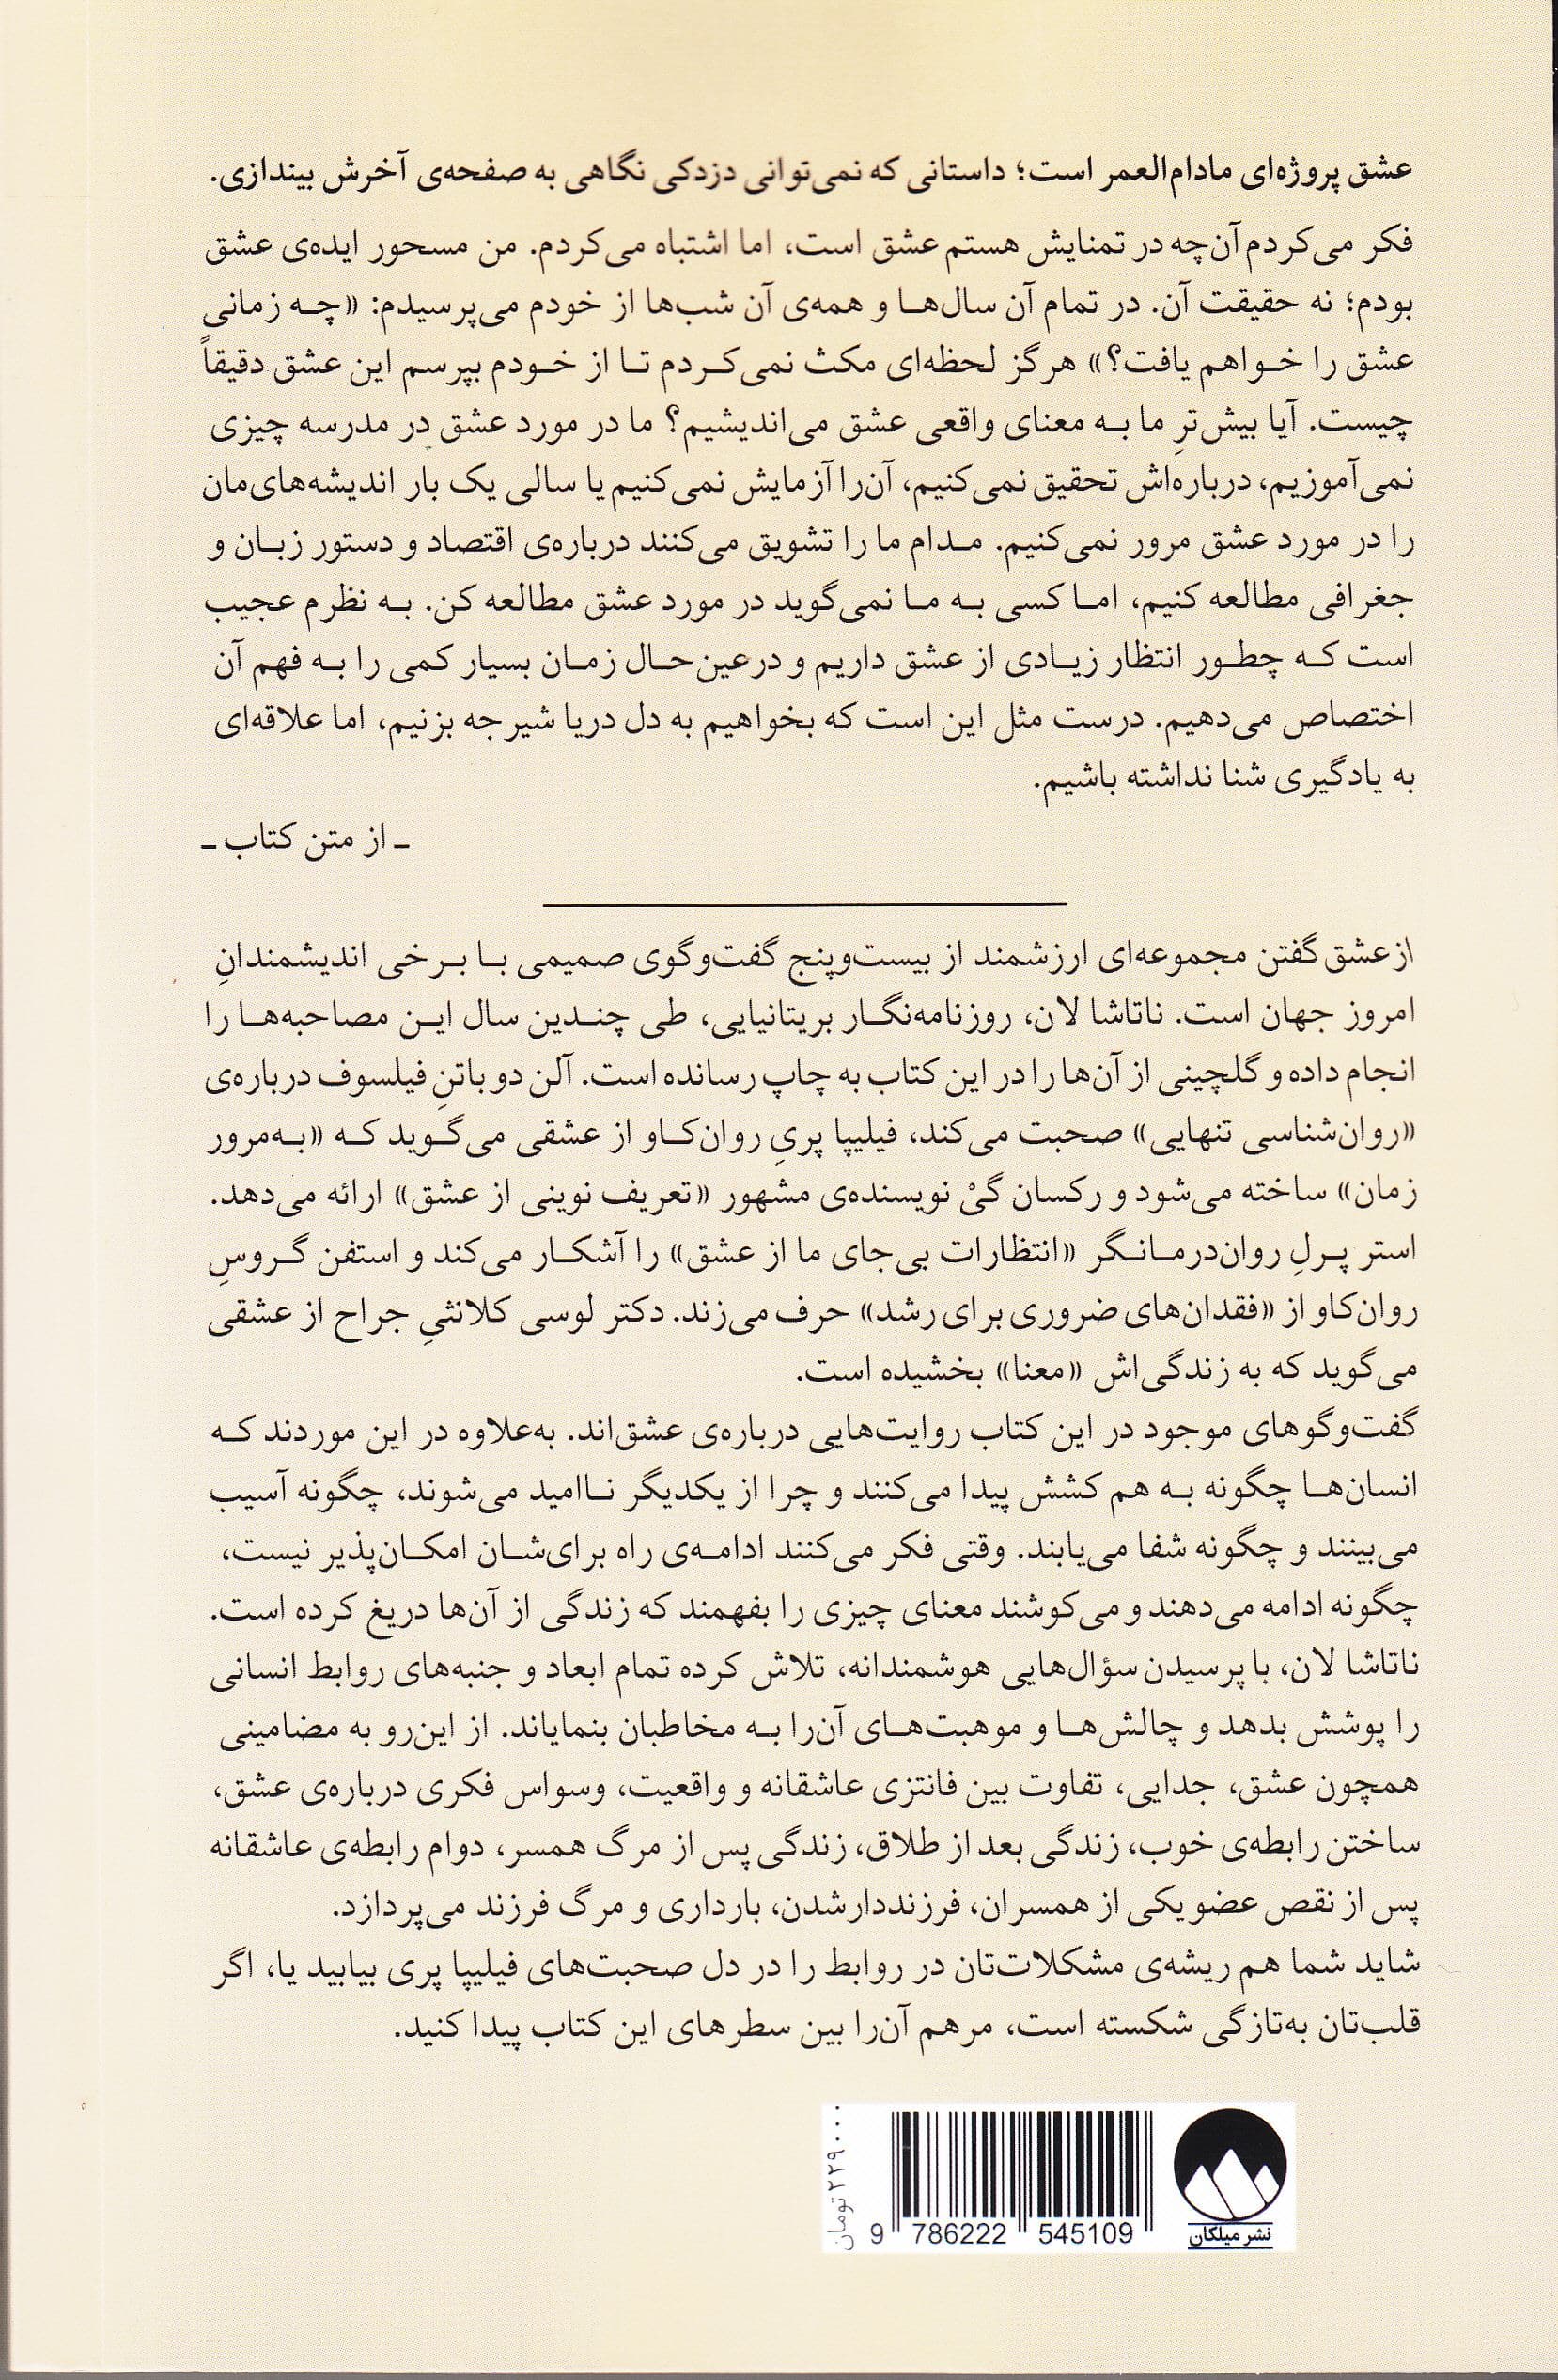 عشق پروژه‌ای مادام‌العمر است؛ داستانی که نمی‌توانی دزدکی نگاهی به صفحه‌ی آخرش بیندازی.
فکر می‌کردم آن‌چه در تمنایش هستم عشق است، اما اشتباه می‌کردم. من مسحور ایده‌ی عشق
بودم؛ نه حقیقت آن. در تمام آن سال‌هـا و همه‌ی آن شب‌ها از خودم می‌پرسیدم: «چـه زمانی
عشق را خـواهم یافت؟» هرگز لحظه‌ای مکث نمی‌کـردم تـا از خـودم بپرسم این عشق دقیقاً
چیست. آیا بیش‌ترِ ما بـه معنای واقعی عشق می‌اندیشیم؟ ما در مورد عشق در مدرسه چیزی
نمی‌آموزیم، درباره‌اش تحقیق نمی‌کنیم، آن‌را آزمایش نمی‌کنیم یا سالی یک بار اندیشه‌های‌مان
را در مورد عشق مرور نمی‌کنیم. مـدام ما را تشویق می‌کنند درباره‌ی اقتصاد و دستور زبـان و
جغرافی مطالعه کنیم، امـا کسی بـه مـا نمی‌گوید در مورد عشق مطالعه کن. بـه نظرم عجیب
است کـه چطـور انتظار زیـادی از عشق داریم و درعین‌حـال زمـان بسیار کمی را بـه فهم آن
اختصاص می‌دهیم. درست مثل این است که بخواهیم به دل دریا شیرجه بزنیم، اما علاقه‌ای
به یادگیری شنا نداشته باشیم.
ـ از متن کتاب ـ
از عشق گفتن مجموعه‌ای ارزشمند از بیست‌وپنج گفت‌وگوی صمیمی بـا بـرخی اندیشمندانِ
امروز جهان است. ناتاشا لان، روزنامه‌نگـار بریتانیایی، طی چنـدین سال ایـن مصاحبه‌هـا را
انجام داده و گلچینی از آن‌ها را در این کتاب به چاپ رسانده است. آلن دو باتنِ فیلسوف درباره‌ی
«روان‌شناسی تنهایی» صحبت می‌کند، فیلیپا پریِ روان‌کـاو از عشقی می‌گـوید کـه «بـه‌مرور
زمان» ساخته می‌شود و رکسان گیْ نویسنده‌ی مشهور «تعریف نوینی از عشق» ارائه می‌دهد.
استر پـرلِ روان‌درمـانـگر «انتظارات بی‌جای ما از عشق» را آشکـار می‌کند و استفن گـروسِ
روان‌کاو از «فقدان‌های ضروری برای رشد» حرف می‌زند. دکتر لوسی کلانثیِ جراح از عشقی
می‌گوید که به زندگی‌اش «معنا» بخشیده است.
گفت‌وگوهای موجود در این کتاب روایت‌هایی درباره‌ی عشق‌اند. به‌علاوه در این موردند کـه
انسان‌هـا چگونه بـه هم کشش پیدا می‌کنند و چرا از یکدیگر نـاامید می‌شوند، چگونه آسیب
می‌بینند و چگونه شفا می‌یابند. وقتی فکر می‌کنند ادامـه‌ی راه برای‌شـان امکـان‌پذیر نیست،
چگونه ادامه می‌دهند و می‌کوشند معنای چیزی را بفهمند که زندگی از آن‌ها دریغ کرده است.
ناتاشا لان، با پرسیدن سؤال‌هایی هوشمندانه، تلاش کرده تمام ابعاد و جنبه‌های روابط انسانی
را پوشش بدهد و چالش‌هـا و موهبت‌هـای آن‌را بـه مخاطبان بنمایاند. از این‌رو به مضامینی
همچون عشق، جدایی، تفاوت بین فانتزی عاشقانه و واقعیت، وسواس فکری درباره‌ی عشق،
ساختن رابطه‌ی خوب، زندگی بعد از طلاق، زندگی پس از مرگ همسر، دوام رابطه‌ی عاشقانه
پس از نقص عضو یکی از همسران، فرزنددار شدن، بارداری و مرگ فرزند می‌پردازد.
شاید شما هم ریشه‌ی مشکلات‌تان در روابط را در دل صحبت‌های فیلیپا پری بیابید یا، اگر
قلب‌تان به‌تازگی شکسته است، مرهم آن‌را بین سطرهای این کتاب پیدا کنید.
۲۲۹۰۰۰ تومان
9 786222 545109
نشر میلکان